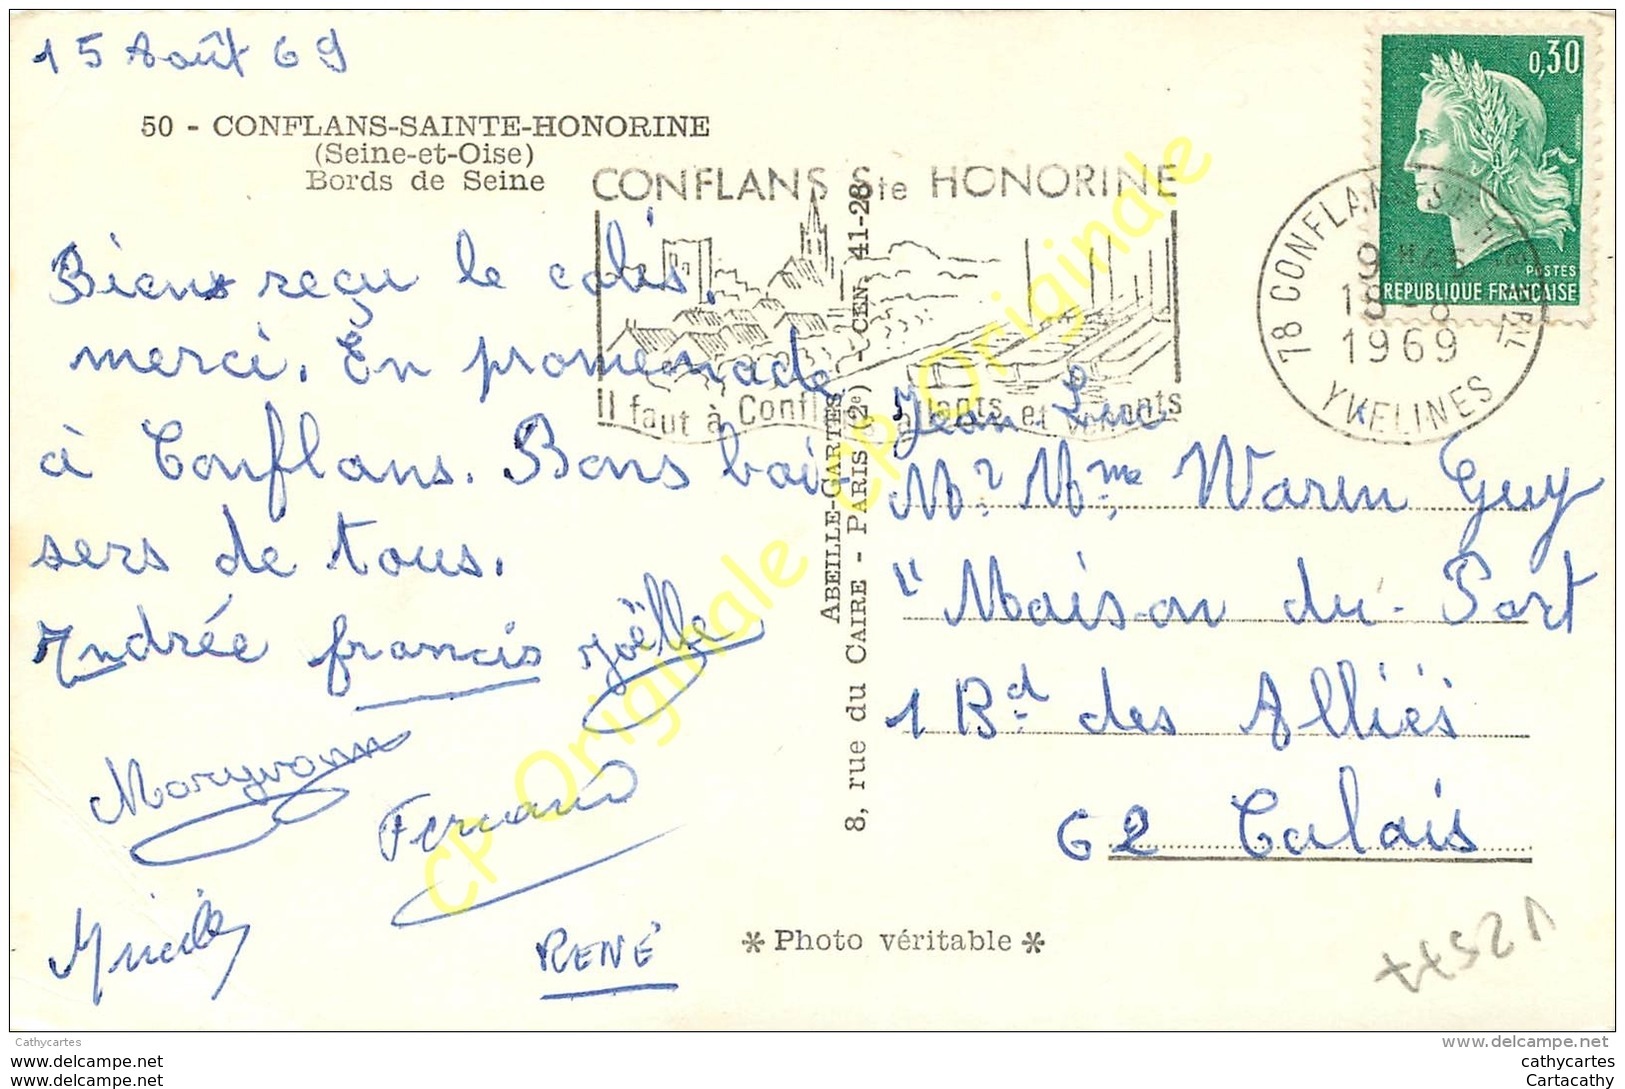 15 Août 69
50 - CONFLANS-SAINTE-HONORINE
(Seine-et-Oise)
Bords de Seine
CONFLANS Ste HONORINE
Il faut à Confl
et
0,30
POSTES
REPUBLIQUE FRANÇAISE
78 CONFLANS STE
1969
YVELINES
Biens reçu le colis.
merci. En promenade
à Conflans. Bons bai-
sers de tous.
Andrée francis Joëlle
Fernand
RENÉ
ABEILLE-CARTES
8, rue du CAIRE - PARIS (2e) - CEN. 41-28
Jean-Luc
Mr Mme Warin Guy
"Maison du Port
1 Bd des Alliés
62 Calais
* Photo véritable *
V2577
CP Originale CP Originale
Cathycartes
www.delcampe.net
www.delcampe.net
www.delcampe.net
cathycartes
Cartacathy